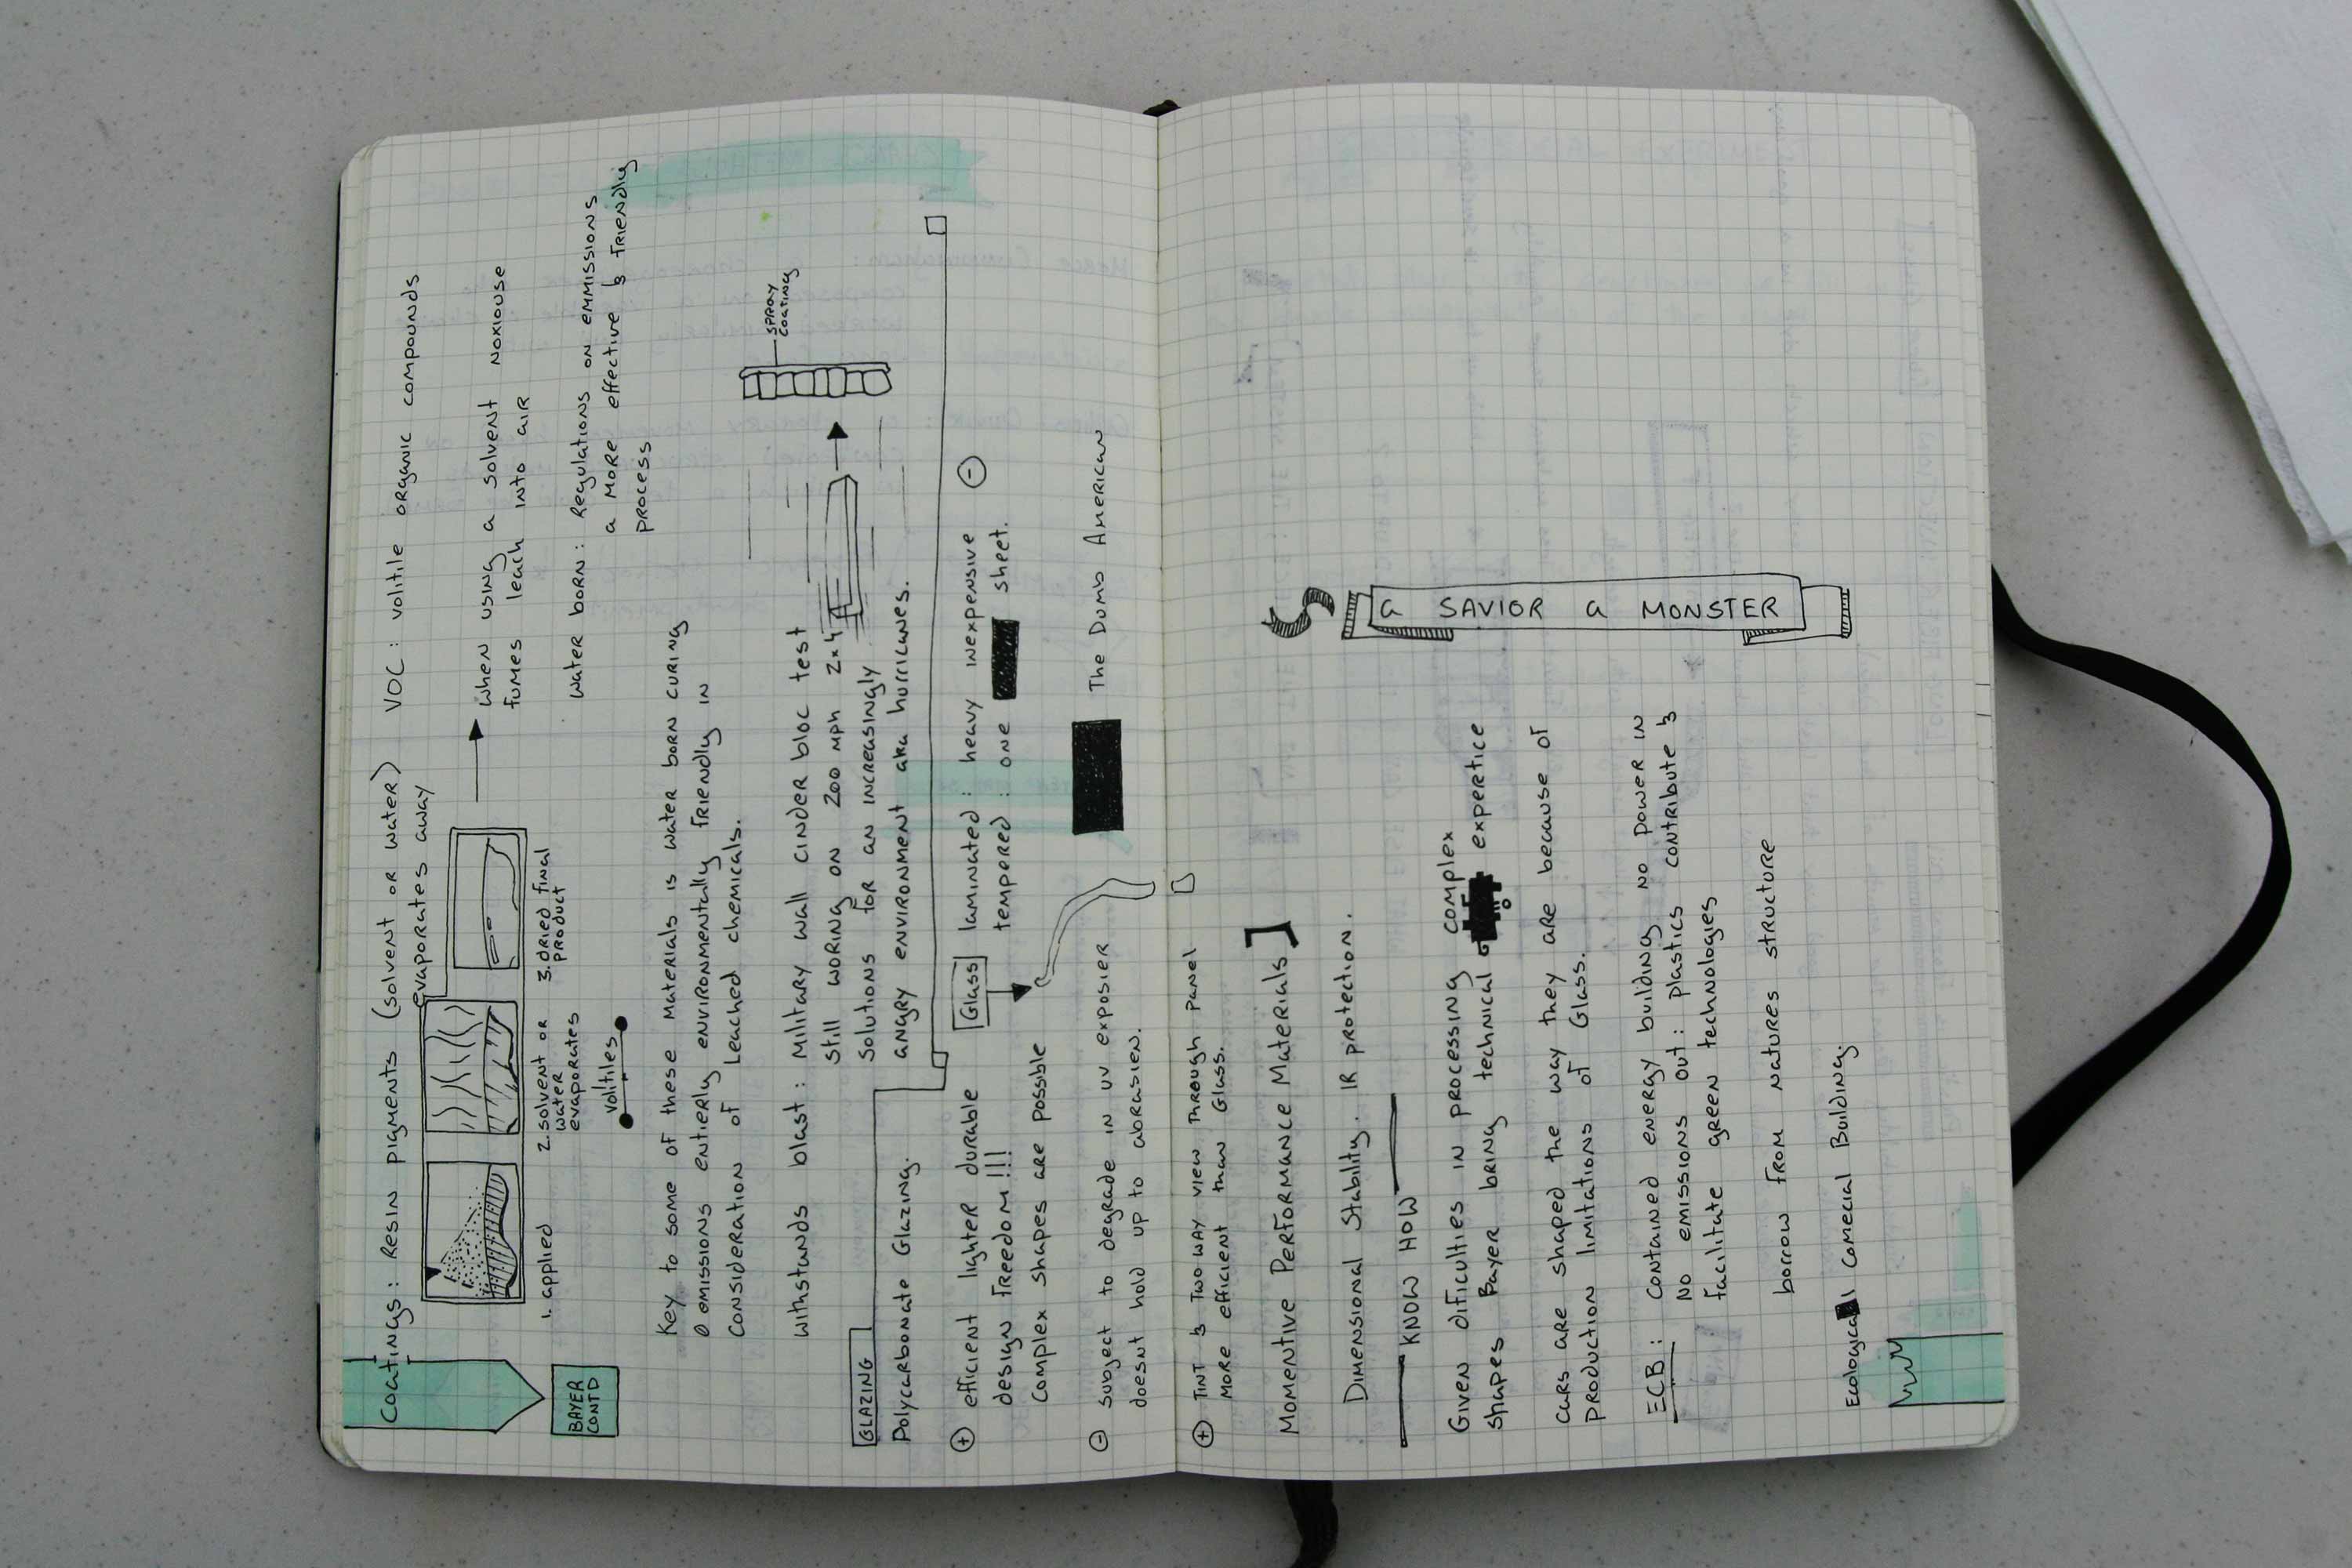 Coatings: Resin pigments (solvent or water)
evaporates away
1. applied
2. solvent or
water
evaporates
3. dried final
product
volitiles
BAYER
CONTD
VOC: volitile organic compounds
when using a solvent noxiouse
fumes leach into air
water born: Regulations on emmissions
a more effective & friendly
process
Key to some of these materials is water born curing
0 emissions entierly environmentally friendly in
consideration of leached chemicals.
withstands blast: military wall cinder bloc test
still woring on 200 mph 2x4
solutions for an increasingly
angry environment aka hurricanes.
SPRAY
COATING
GLAZING
Polycarbonate Glazing.
+ efficient lighter durable
design freedom!!!
Complex shapes are possible
- subject to degrade in uv exposier
doesnt hold up to abrasien.
Glass
laminated: heavy inexpensive -
tempered: one sheet.
The Dumb American
+ Tint & Two way view through panel
more efficient than Glass.
Momentive Performance Materials]
Dimensional Stability. IR protection.
KNOW HOW
Given dificulties in processing complex
shapes Bayer bring technical expertice
cars are shaped the way they are because of
production limitations of Glass.
ECB: contained energy building no power in
no emissions out: plastics contribute &
facilitate green technologies
borrow from natures structure
Ecological Comecial Building.
a SAVIOR a MONSTER